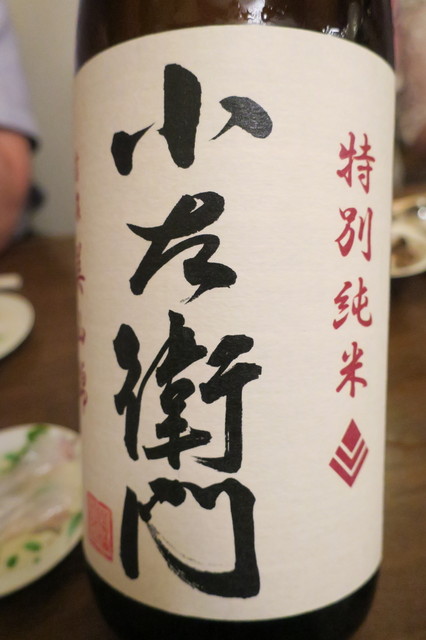 特別純米
小左衛門